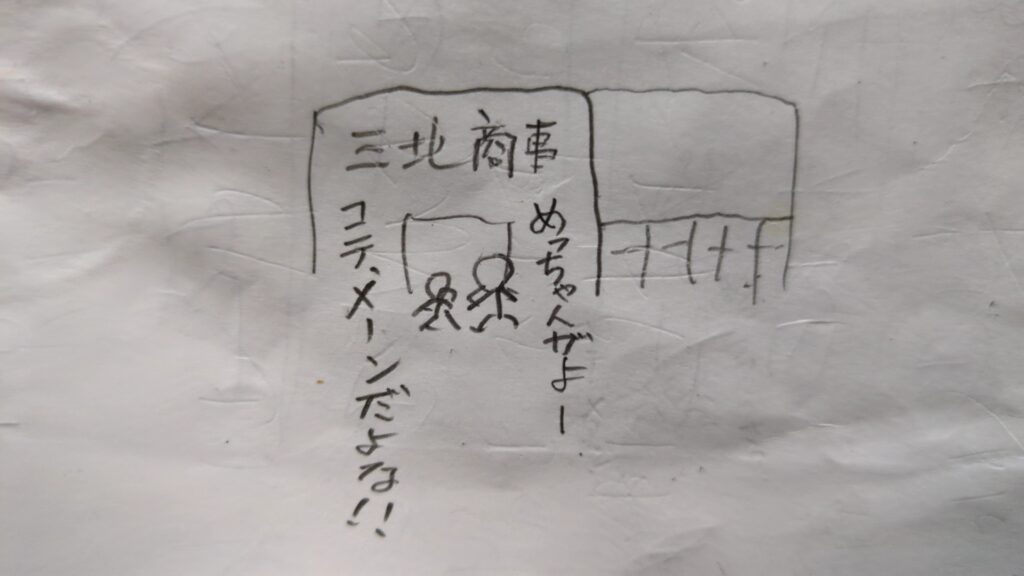 三北商事
めっちゃんがよー
コテ、メーンだよな!!